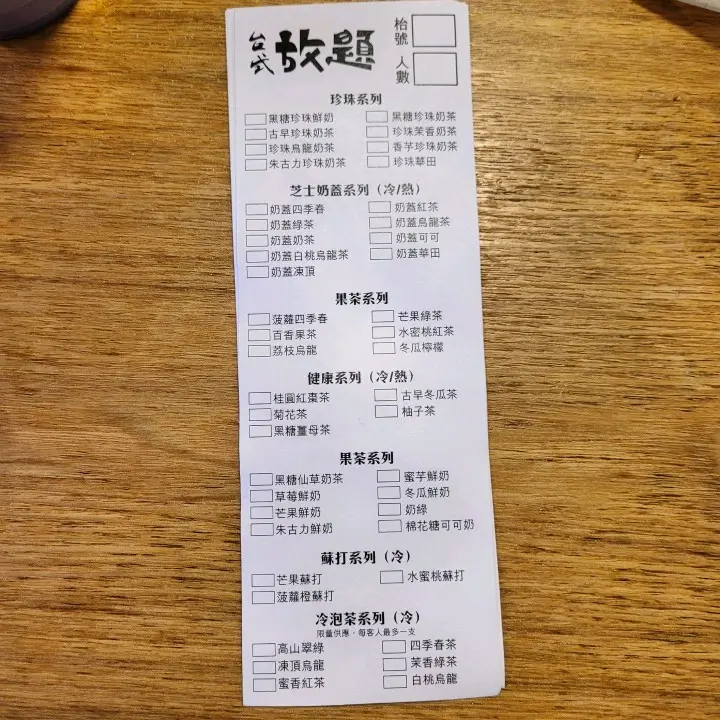 台式放題
枱號
人數
珍珠系列
黑糖珍珠鮮奶 黑糖珍珠奶茶
古早珍珠奶茶 珍珠茉香奶茶
珍珠烏龍奶茶 香芋珍珠奶茶
朱古力珍珠奶茶 珍珠華田
芝士奶蓋系列（冷/熱）
奶蓋四季春 奶蓋紅茶
奶蓋綠茶 奶蓋烏龍茶
奶蓋奶茶 奶蓋可可
奶蓋白桃烏龍茶 奶蓋華田
奶蓋凍頂
果茶系列
菠蘿四季春 芒果綠茶
百香果茶 水密桃紅茶
荔枝烏龍 冬瓜檸檬
健康系列（冷/熱）
桂圓紅棗茶 古早冬瓜茶
菊花茶 柚子茶
黑糖薑母茶
果茶系列
黑糖仙草奶茶 蜜芋鮮奶
草莓鮮奶 冬瓜鮮奶
芒果鮮奶 奶綠
朱古力鮮奶 棉花糖可可奶
蘇打系列（冷）
芒果蘇打 水蜜桃蘇打
菠蘿橙蘇打
冷泡茶系列（冷）
限量供應，每客人最多一支
高山翠綠 四季春茶
凍頂烏龍 茉香綠茶
蜜香紅茶 白桃烏龍